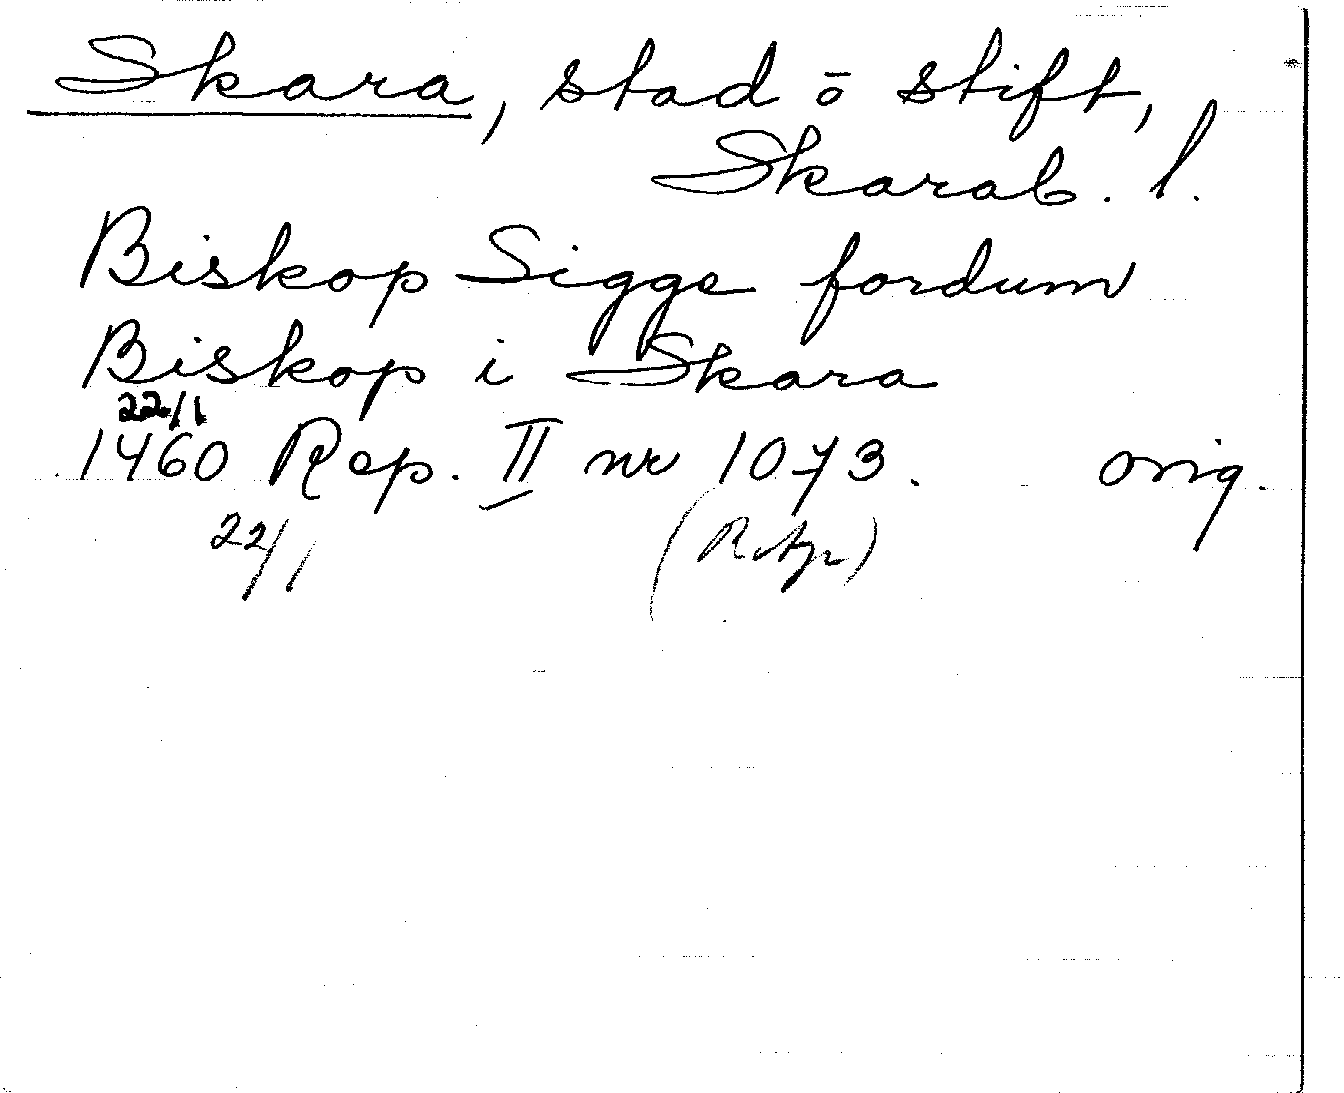 Skara, stad ō stift,
Skarab. l.
Biskop Sigge fordum
Biskop i Skara
22/1
1460 Rep. II nr 1073. orig.
22/1